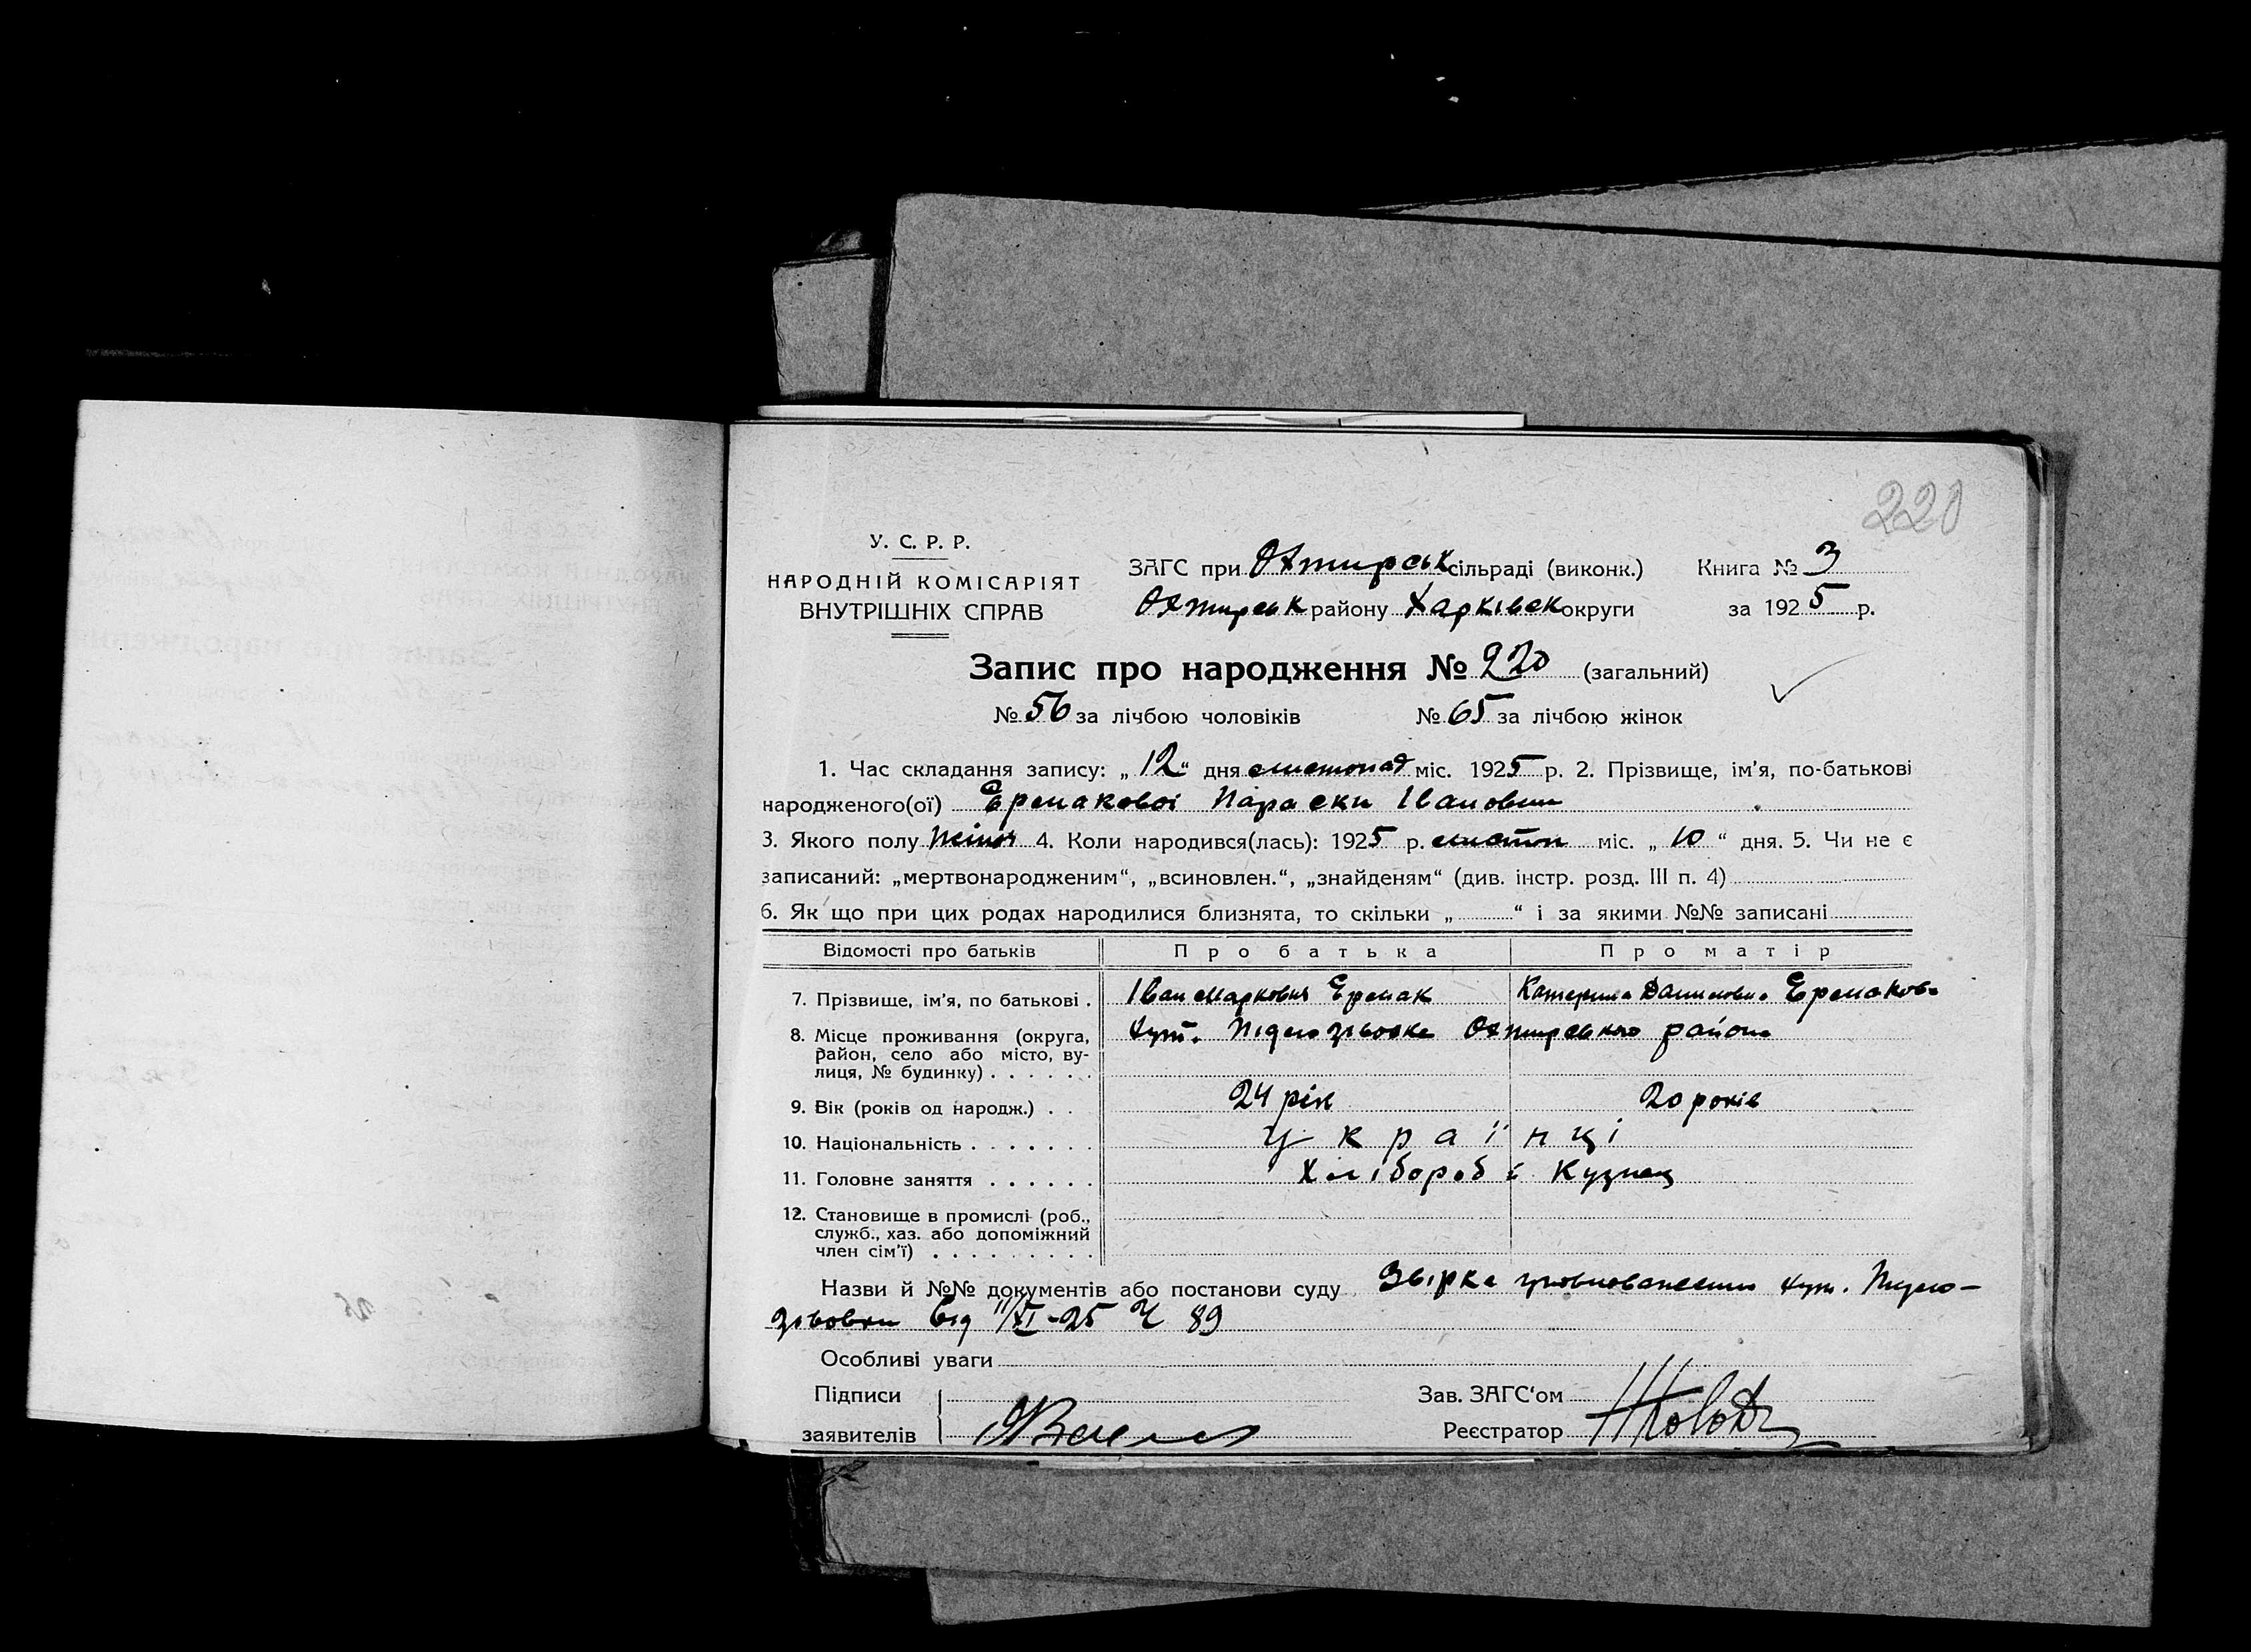 220
У. С. Р. Р.
НАРОДНІЙ КОМІСАРІЯТ
ВНУТРІШНІХ СПРАВ
ЗАГС при Охтирськ сільраді (виконк.) Книга № 3
Охтирськ району Харківськ округи за 1925 р.
Запис про народження № 220 (загальний)
№ 56 за лічбою чоловіків № 65 за лічбою жінок
1. Час складання запису: „12“ дня листопад міс. 1925 р. 2. Прізвище, ім’я, по-батькові
народженого(ої) Єрмакової Параски Івановни
3. Якого полу жіноч 4. Коли народився(лась): 1925 р. листоп міс. „10“ дня. 5. Чи не є
записаний: „мертвонародженим“, „всиновлен.“, „знайденям“ (див. інстр. розд. III п. 4)
6. Як що при цих родах народилися близнята, то скільки „ “ і за якими №№ записані
Відомості про батьків Про батька Про матір
7. Прізвище, ім’я, по батькові . Іван Маркович Єрмак Катерина Даниловна Єрмакова
8. Місце проживання (округа, хут. Підлозіовка Охтирського району
район, село або місто, ву-
лиця, № будинку) . . . . . .
9. Вік (років од народж.) . . 24 рік 20 років
10. Національність . . . . . . . українці
11. Головне заняття . . . . . . Хлібороб і Кузнец
12. Становище в промислі (роб.,
служб., хаз. або допоміжний
член сім’ї) . . . . . . . . .
Назви й №№ документів або постанови суду Звірка уповноваженого хут. Підло-
зіовки від 11/XI-25 Ч 89
Особливі уваги
Підписи Зав. ЗАГС‘ом
заявителів Реєстратор